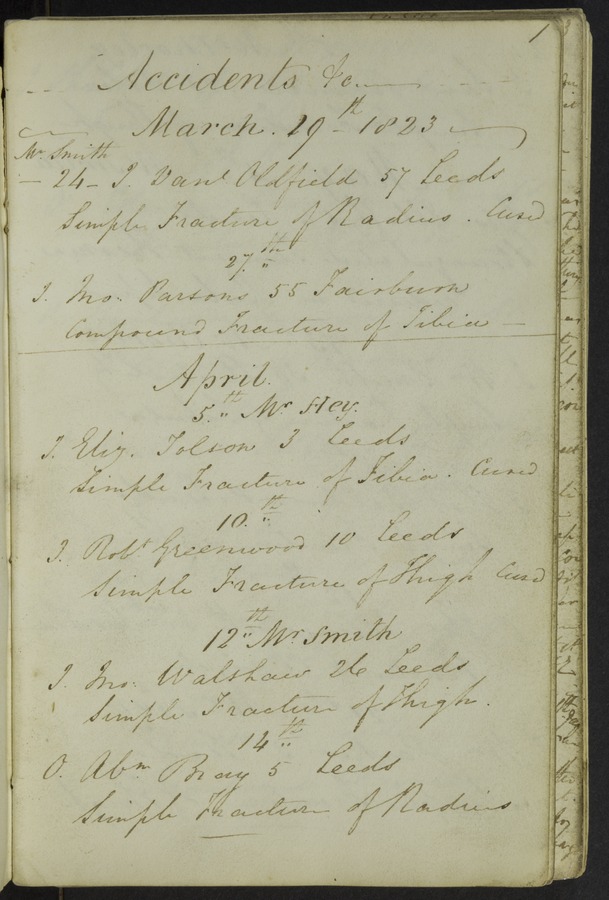 1
Accidents &c.
March. 19th 1823
Mr. Smith
- 24 - I. Danl Oldfield 57 Leeds
Simple Fracture of Radius. Cured
27.th
I. Jno. Parsons 55 Fairburn
Compound Fracture of Tibia -
April.
5.th Mr Hey.
I. Eliz. Tolson 3 Leeds
Simple Fracture of Tibia. Cured
10.th
I. Robt Greenwood 10 Leeds
Simple Fracture of Thigh Cured
12th Mr Smith
I. Jno. Walshaw 26 Leeds
Simple Fracture of Thigh.
14th
O. Abm Bray 5 Leeds
Simple Fracture of Radius